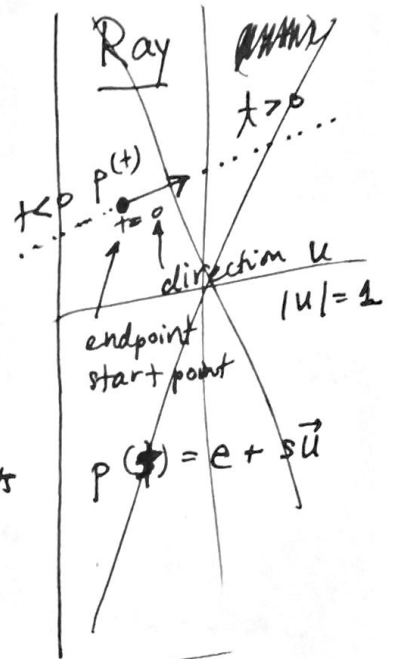 Ray
t>0
p(t)
t<0
t=0
direction u
|u|=1
endpoint
start point
p( ) = e + su⃗